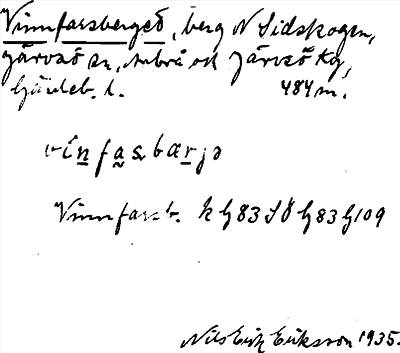 Vinnfarsberget, berg N Sidskogen,
Järvsö sn, Arbrå och Järvsö tg,
Gävleb. l. 484 m.
vin fas bærjə
Vinnfarsb. k G83 SÖ G83 G109
Nils Erik Eriksson 1935.